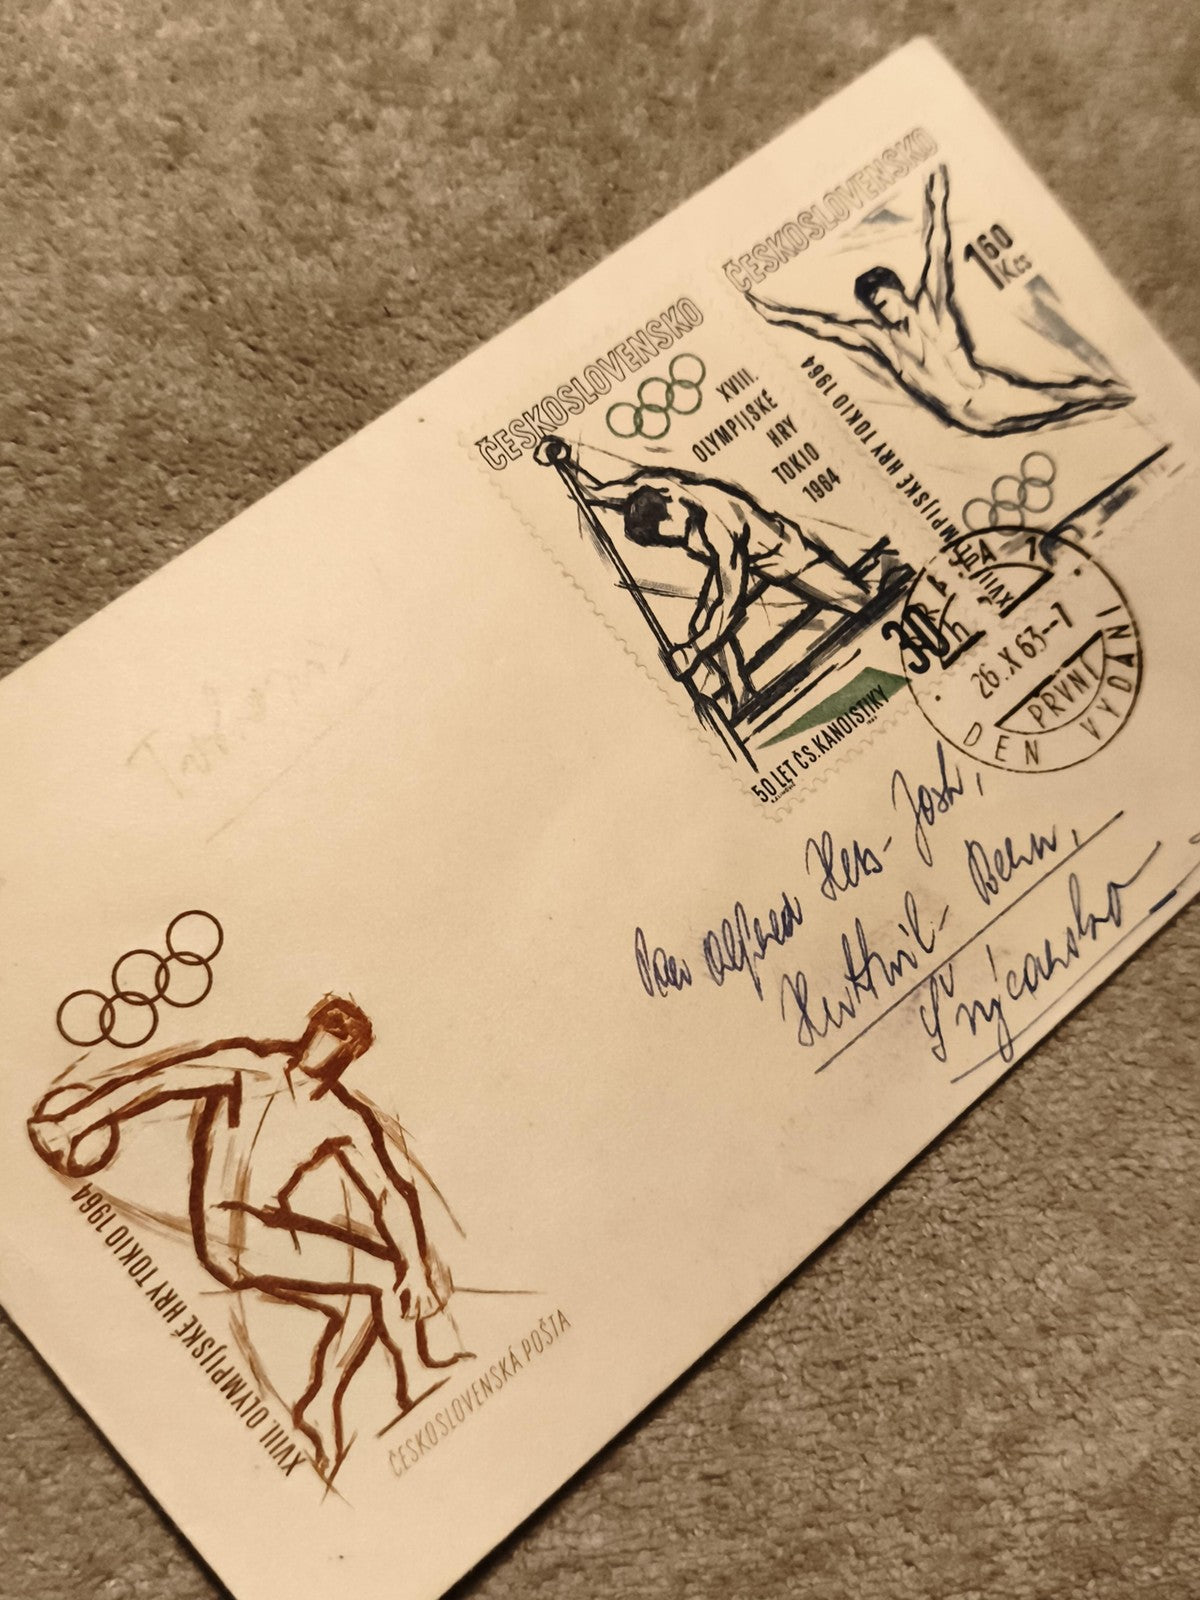 ČESKOSLOVENSKO
XVIII.
OLYMPIJSKÉ
HRY
TOKIO
1964
30h
50 LET ČS. KANOISTIKY
ČESKOSLOVENSKO
1 60
Kčs
XVIII. OLYMPIJSKÉ HRY TOKIO 1964
PRAHA 1
26.X.63-7
PRVNÍ
DEN VYDÁNÍ
Alfred Hess-Josh,
Huttwil-Bern,
Švýcarsko
XVIII. OLYMPIJSKÉ HRY TOKIO 1964
ČESKOSLOVENSKÁ POŠTA